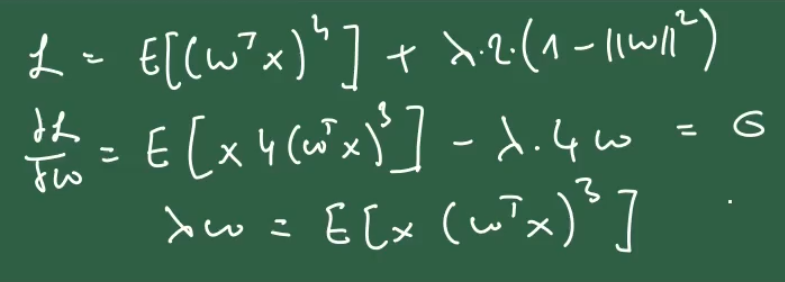 ℒ = E[(wᵀx)⁴] + λ·2·(1 - ||w||²)
∂ℒ/∂w = E[x 4(wᵀx)³] - λ·4w = 0
λw = E[x (wᵀx)³]